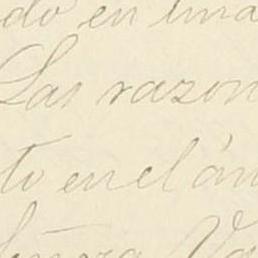 do en una
Las razon
to en el án